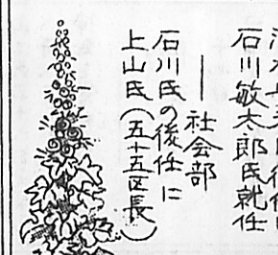 石川敏太郎氏就任
―社会部
石川氏の後任に
上山氏(五十五区長)